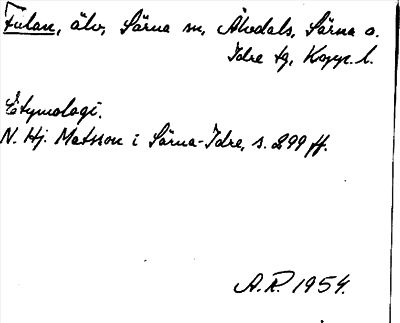 Fulan, älv, Särna sn, Älvdals, Särna o.
Idre tg, Kopp. l.
Etymologi.
N. Hj. Matsson i Särna-Idre, s. 299 ff.
A.R. 1954.